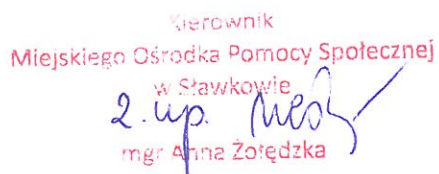 Kierownik
Miejskiego Ośrodka Pomocy Społecznej
w Sławkowie
z. up.
mgr Anna Żołędzka